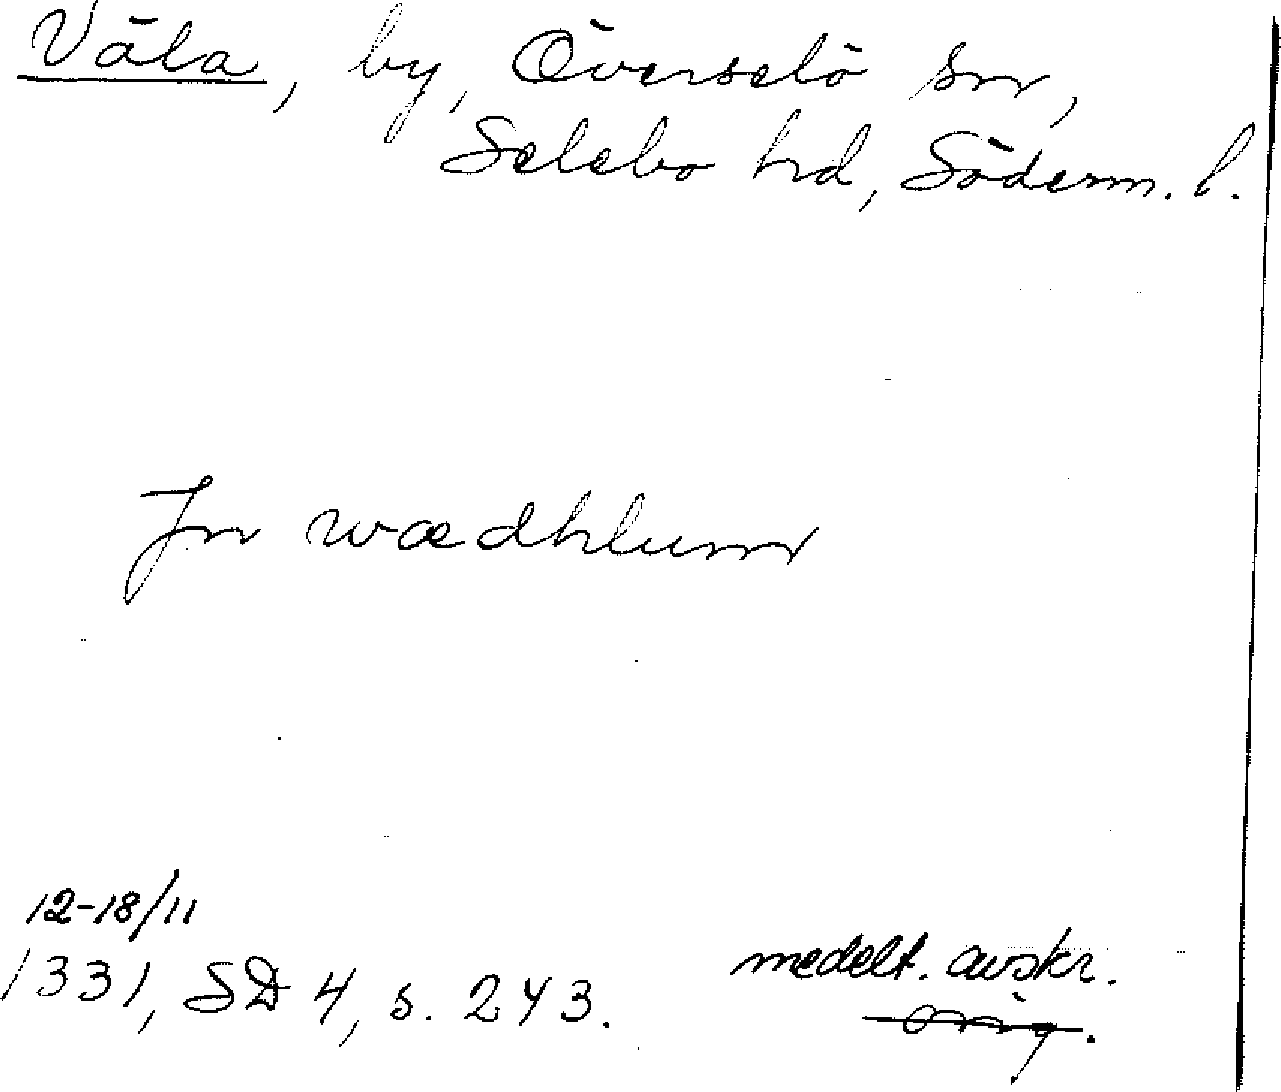 Väla, by, Överselö sn,
Selebo hd, Söderm. l.
Jn wædhlum
12-18/11
1331, SD 4, s. 243.
medelt. avskr.
orig.